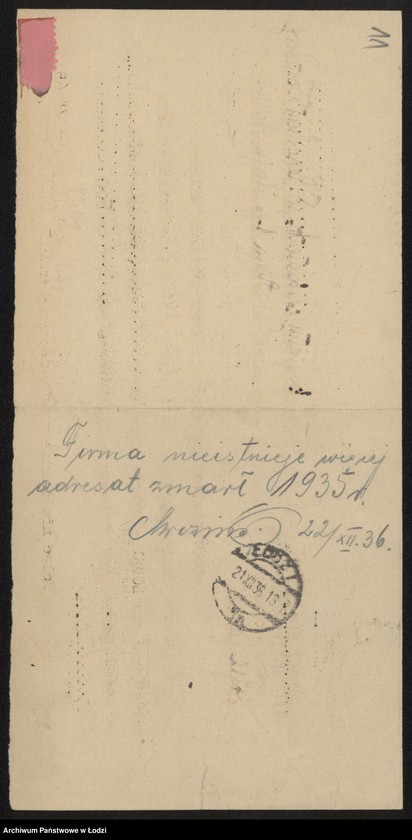 11
Firma nieistnieje więcej
adresat zmarł 1935 r.
22/XII.36.
ŁÓDŹ 1
21 XII 36 18
Archiwum Państwowe w Łodzi